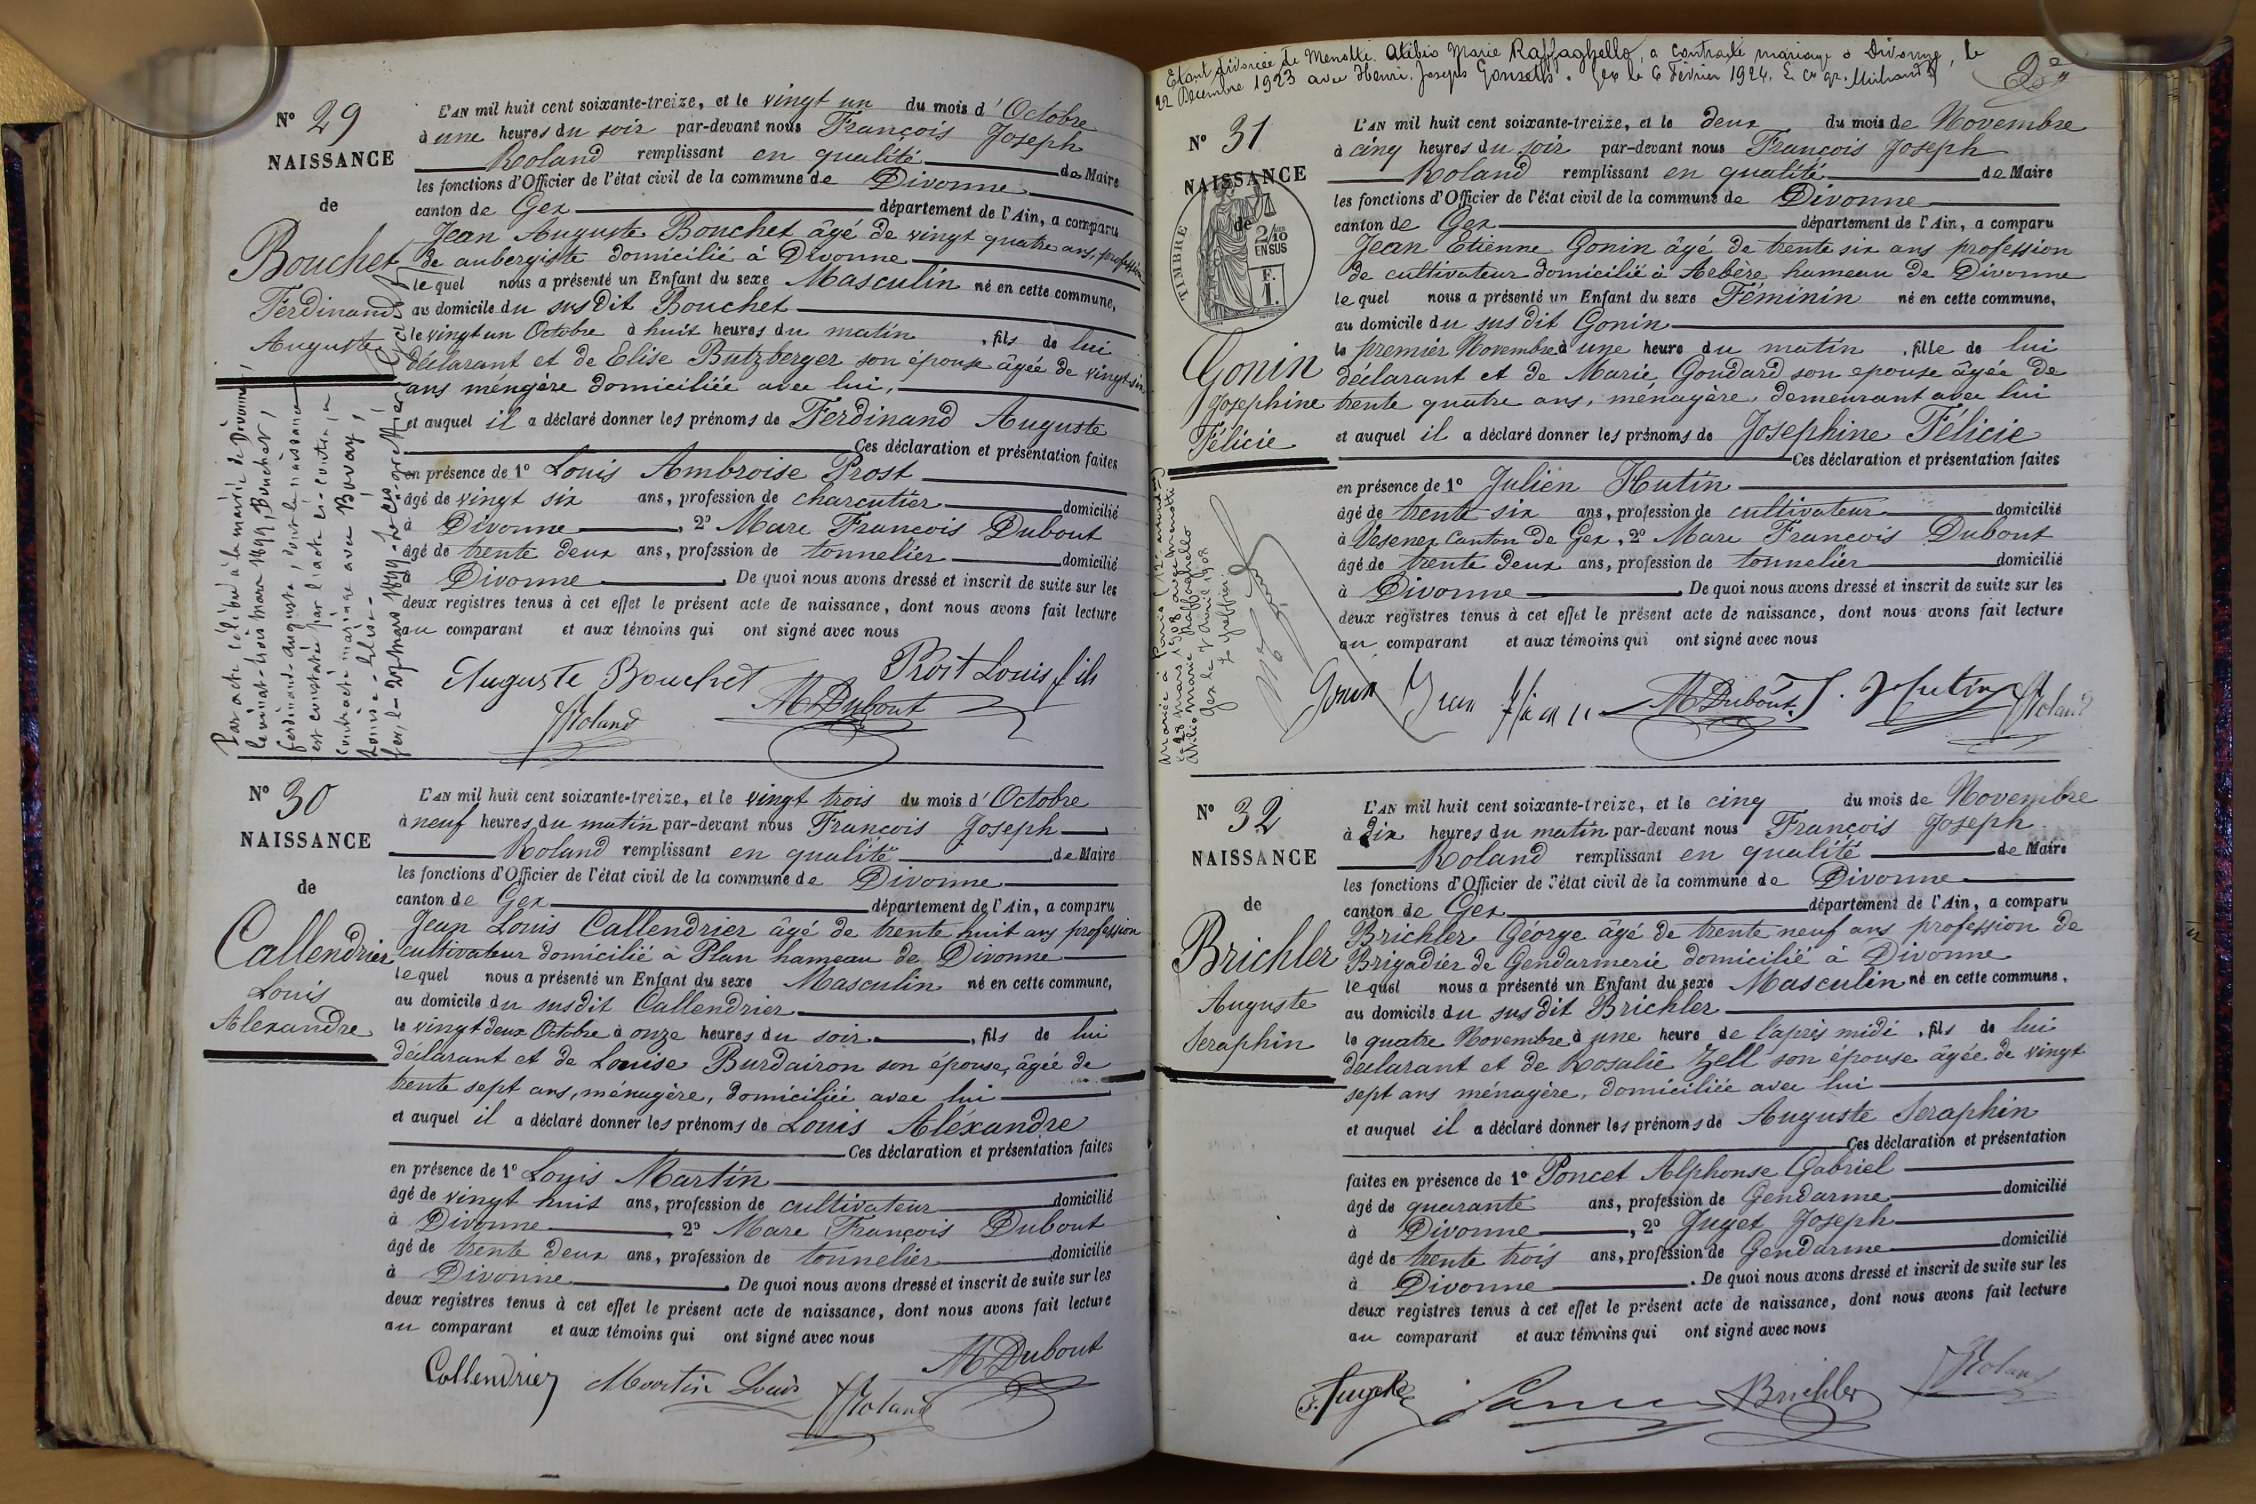 N° 29
NAISSANCE
de
Bouchet
Ferdinand
Auguste
L'AN mil huit cent soixante-treize, et le vingt un du mois d'Octobre
à une heures du soir par-devant nous François Joseph
Roland remplissant en qualité de Maire
les fonctions d'Officier de l'état civil de la commune de Divonne
canton de Gex département de l'Ain, a comparu
Jean Auguste Bouchet âgé de vingt quatre ans, profession
de aubergiste domicilié à Divonne
le quel nous a présenté un Enfant du sexe Masculin né en cette commune,
au domicile du susdit Bouchet
le vingt un Octobre à huit heures du matin, fils de lui
déclarant et de Elise Butzberger son épouse âgée de vingt six
ans méngère domiciliée avec lui,
et auquel il a déclaré donner les prénoms de Ferdinand Auguste
Ces déclaration et présentation faites
en présence de 1° Louis Ambroise Prost
âgé de vingt six ans, profession de charcutier domicilié
à Divonne, 2° Marc François Dubout
âgé de trente deux ans, profession de tonnelier domicilié
à Divonne. De quoi nous avons dressé et inscrit de suite sur les
deux registres tenus à cet effet le présent acte de naissance, dont nous avons fait lecture
au comparant et aux témoins qui ont signé avec nous
Auguste Bouchet Prost Louis fils
JRoland M Dubout
Par acte célébré à la mairie de Divonne,
le vingt-trois mars 1899, Bouchet,
ferdinand-auguste, dont la naissance
est constatée par l'acte ci-contre, a
contracté mariage avec Bovay,
Louise-
Gex, le 27 mars 1899. Le greffier
N° 30
NAISSANCE
de
Callendrier
Louis
Alexandre
L'AN mil huit cent soixante-treize, et le vingt trois du mois d'Octobre
à neuf heures du matin par-devant nous François Joseph
Roland remplissant en qualité de Maire
les fonctions d'Officier de l'état civil de la commune de Divonne
canton de Gex département de l'Ain, a comparu
Jean Louis Callendrier âgé de trente huit ans profession
cultivateur domicilié à Plan hameau de Divonne
le quel nous a présenté un Enfant du sexe Masculin né en cette commune,
au domicile du susdit Callendrier
le vingt deux Octobre à onze heures du soir, fils de lui
déclarant et de Louise Burdairon son épouse, âgée de
trente sept ans, ménagère, domiciliée avec lui
et auquel il a déclaré donner les prénoms de Louis Aléxandre
Ces déclaration et présentation faites
en présence de 1° Louis Martin
âgé de vingt huit ans, profession de cultivateur domicilié
à Divonne 2° Marc François Dubout
âgé de trente deux ans, profession de tonnelier domicilié
à Divonne. De quoi nous avons dressé et inscrit de suite sur les
deux registres tenus à cet effet le présent acte de naissance, dont nous avons fait lecture
au comparant et aux témoins qui ont signé avec nous
M Dubout
Callendrier Martin Louis JRoland
Etant divorcée de Menotti Atilio Marie Raffaghello, a contracté mariage à Divonne, le
22 Décembre 1923 avec Henri Joseph Gonsetts. Gex le 6 Février 1924. Le
N° 31
NAISSANCE
de
TIMBRE
2/10
EN SUS
F.
1.
Gonin
Josephine
Félicie
L'AN mil huit cent soixante-treize, et le deux du mois de Novembre
à cinq heures du soir par-devant nous François Joseph
Roland remplissant en qualité de Maire
les fonctions d'Officier de l'état civil de la commune de Divonne
canton de Gex département de l'Ain, a comparu
Jean Etienne Gonin âgé de trente six ans profession
de cultivateur domicilié à Arbère hameau de Divonne
le quel nous a présenté un Enfant du sexe Féminin né en cette commune,
au domicile du susdit Gonin
le premier Novembre à une heure du matin, fille de lui
déclarant et de Marie Goudard son epouse âgée de
trente quatre ans, ménagère, demeurant avec lui
et auquel il a déclaré donner les prénoms de Josephine Félicie
Ces déclaration et présentation faites
en présence de 1° Julien Hutin
âgé de trente six ans, profession de cultivateur domicilié
à Vesenex Canton de Gex, 2° Marc François Dubout
âgé de trente deux ans, profession de tonnelier domicilié
à Divonne. De quoi nous avons dressé et inscrit de suite sur les
deux registres tenus à cet effet le présent acte de naissance, dont nous avons fait lecture
au comparant et aux témoins qui ont signé avec nous
Gonin Jean M Dubout J. Hutin JRoland
Mariée à Paris (12e arrdt)
le 28 mars 1908 avec Menotti
Atilio Marie Raffaghello
Gex le 7 Avril 1908
Le greffier
N° 32
NAISSANCE
de
Brichler
Auguste
Seraphin
L'AN mil huit cent soixante-treize, et le cinq du mois de Novembre
à dix heures du matin par-devant nous François Joseph
Roland remplissant en qualité de Maire
les fonctions d'Officier de l'état civil de la commune de Divonne
canton de Gex département de l'Ain, a comparu
Brichler Géorge âgé de trente neuf ans profession de
Brigadier de Gendarmerie domicilié à Divonne
le quel nous a présenté un Enfant du sexe Masculin né en cette commune,
au domicile du susdit Brichler
le quatre Novembre à une heure de l'après midi, fils de lui
déclarant et de Rosalie Zell son épouse âgée de vingt
sept ans ménagère, domiciliée avec lui
et auquel il a déclaré donner les prénoms de Auguste Seraphin
Ces déclaration et présentation
faites en présence de 1° Poncet Alphonse Gabriel
âgé de quarante ans, profession de Gendarme domicilié
à Divonne, 2° Juget Joseph
âgé de trente trois ans, profession de Gendarme domicilié
à Divonne. De quoi nous avons dressé et inscrit de suite sur les
deux registres tenus à cet effet le présent acte de naissance, dont nous avons fait lecture
au comparant et aux témoins qui ont signé avec nous
Brichler JRoland